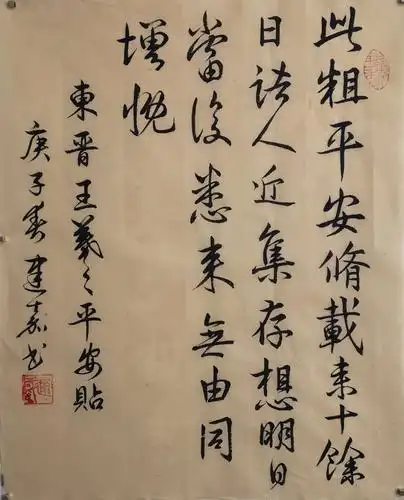 此粗平安脩載来十餘
日諸人近集存想明日
當復悉来無由同
增慨
東晋王羲之平安貼
庚子春建嘉书